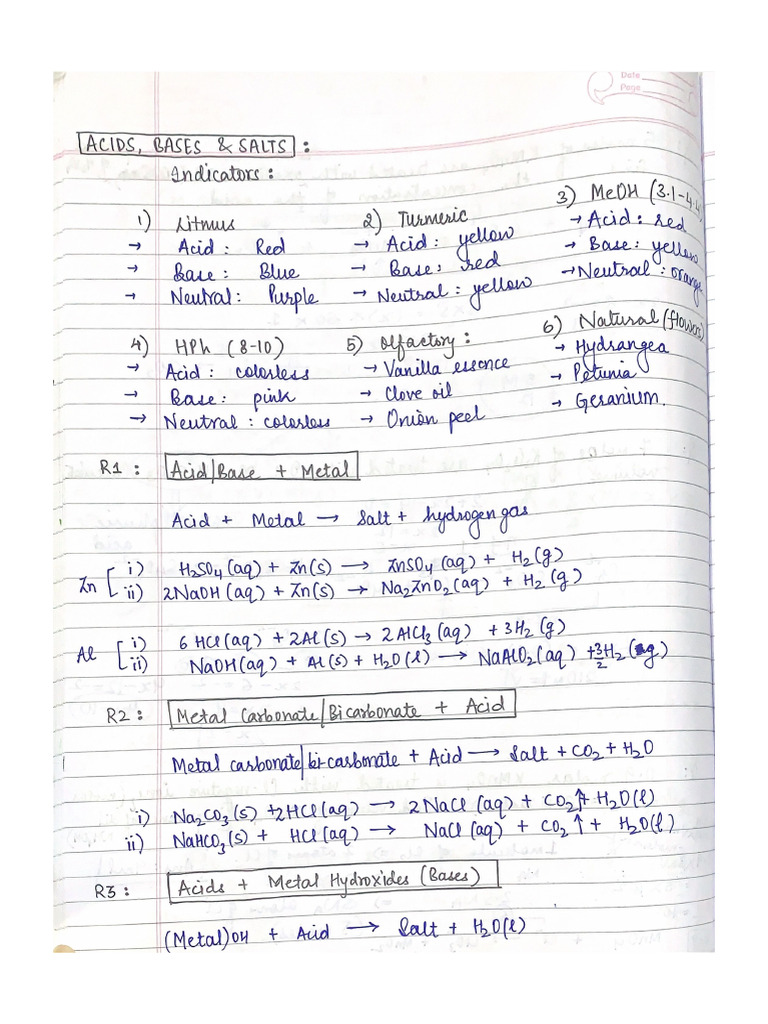 Date
Page
ACIDS, BASES & SALTS :
Indicators :
1) Litmus
→ Acid : Red
→ Base : Blue
→ Neutral : Purple
2) Turmeric
→ Acid : yellow
→ Base : red
→ Neutral : yellow
3) MeOH (3.1-4.4)
→ Acid : red
→ Base : yellow
→ Neutral : orange
4) HPh (8-10)
→ Acid : colorless
→ Base : pink
→ Neutral : colorless
5) Olfactory :
→ Vanilla essence
→ Clove oil
→ Onion peel
6) Natural (flowers)
→ Hydrangea
→ Petunia
→ Geranium.
R1 : Acid/Base + Metal
Acid + Metal → Salt + hydrogen gas
Zn [ i) H₂SO₄(aq) + Zn(s) → ZnSO₄(aq) + H₂(g)
ii) 2NaOH(aq) + Zn(s) → Na₂ZnO₂(aq) + H₂(g)
Al [ i) 6HCl(aq) + 2Al(s) → 2AlCl₃(aq) + 3H₂(g)
ii) NaOH(aq) + Al(s) + H₂O(l) → NaAlO₂(aq) + 3/2 H₂(g)
R2 : Metal Carbonate/Bicarbonate + Acid
Metal carbonate/bicarbonate + Acid → Salt + CO₂ + H₂O
i) Na₂CO₃(s) + 2HCl(aq) → 2NaCl(aq) + CO₂↑ + H₂O(l)
ii) NaHCO₃(s) + HCl(aq) → NaCl(aq) + CO₂↑ + H₂O(l)
R3 : Acids + Metal Hydroxides (Bases)
(Metal)OH + Acid → Salt + H₂O(l)